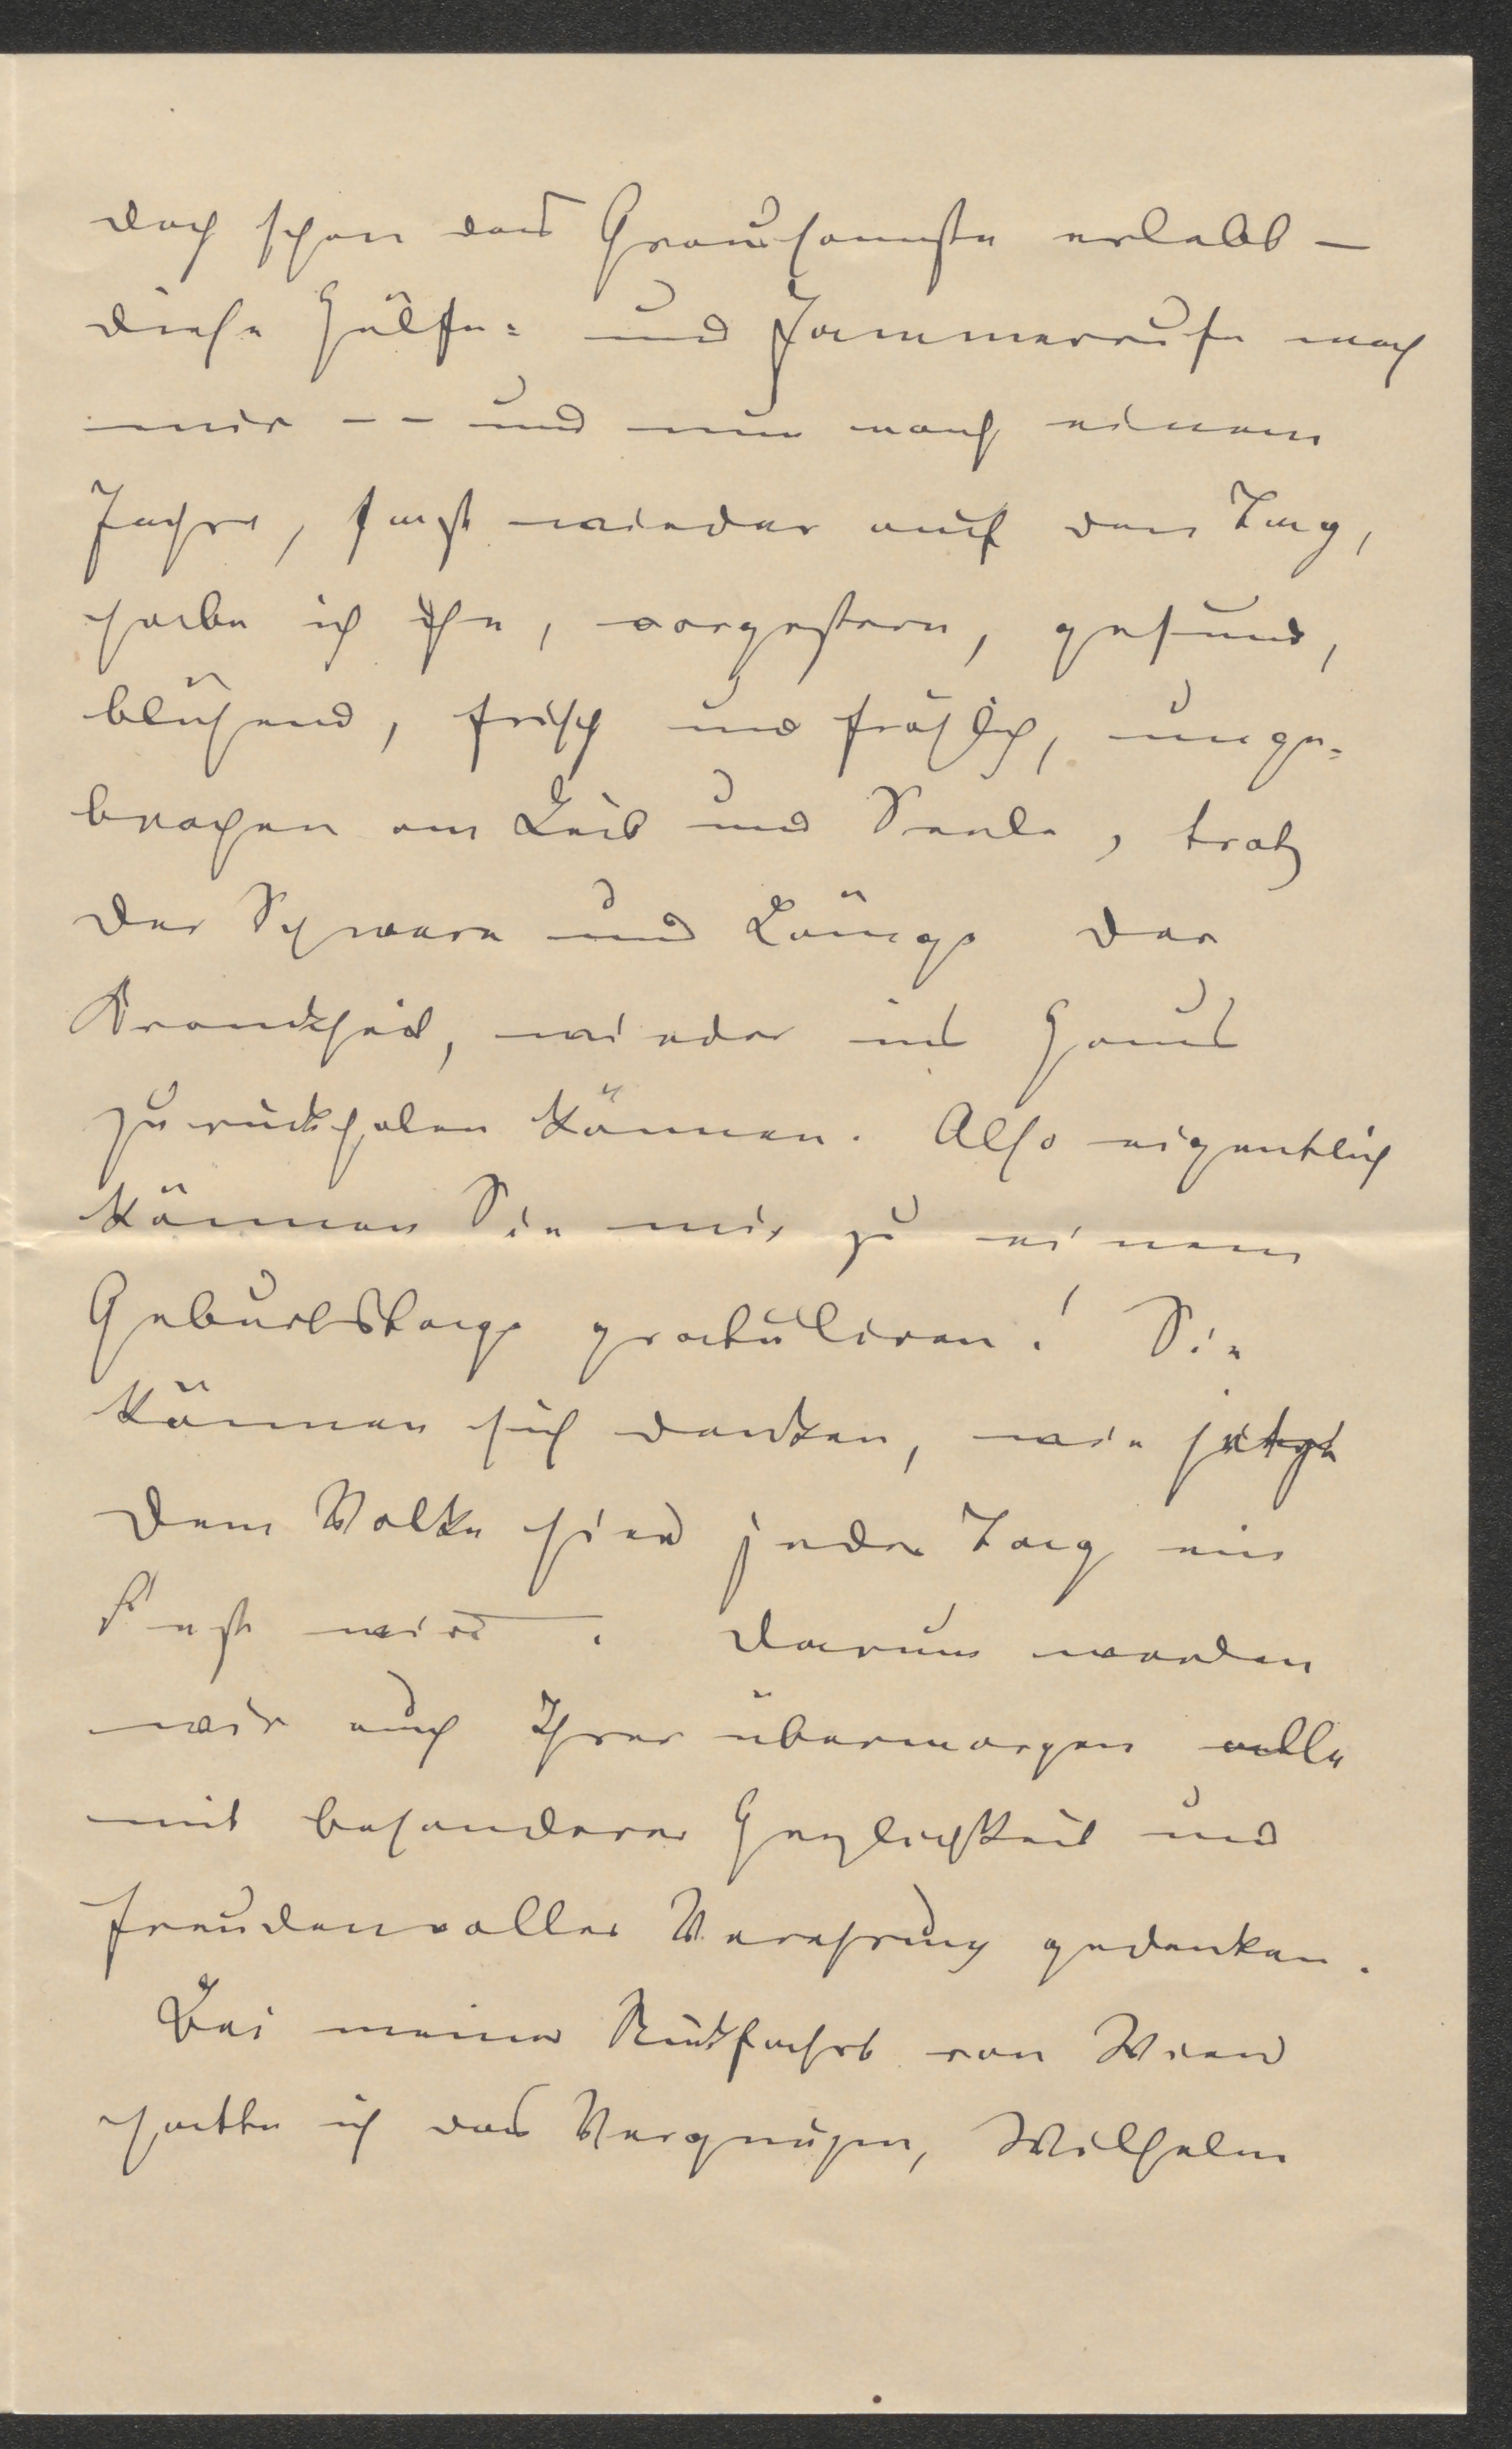 doch schon das Grausamste erlebt —
diese Hülfe= und Jammerrufe nach
mir – – und nun nach einem
Jahre, fast wieder auf den Tag,
habe ich ihn, vorgestern, gesund,
blühend, frisch und fröhlich, unge=
brochen am Leib und Seele, trotz
der Schwere und Länge der
Krankheit, wieder ins Haus
zurückholen können. Also eigentlich
können Sie mir zu einem
Geburtstage gratuliren! Sie
können sich denken, wie jetzt
dem Volke hier jeder Tag ein
Fest wird. Darum werden
wir auch Ihrer übermorgen alle
mit besonderer Herzlichkeit und
freudenvoller Verehrung gedenken.
Bei meiner Rückfahrt von Wien
hatte ich das Vergnügen, Wilhelm